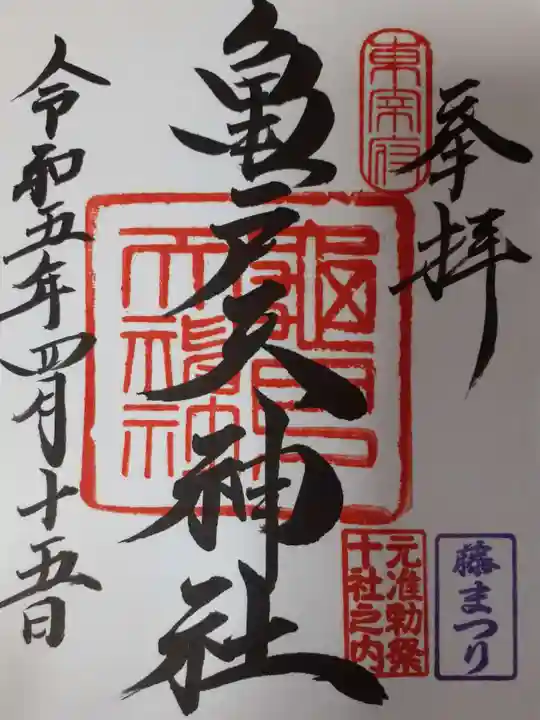 奉拝
東宰府
亀戸天神社
元准勅祭
十社之内
藤まつり
令和五年四月十五日